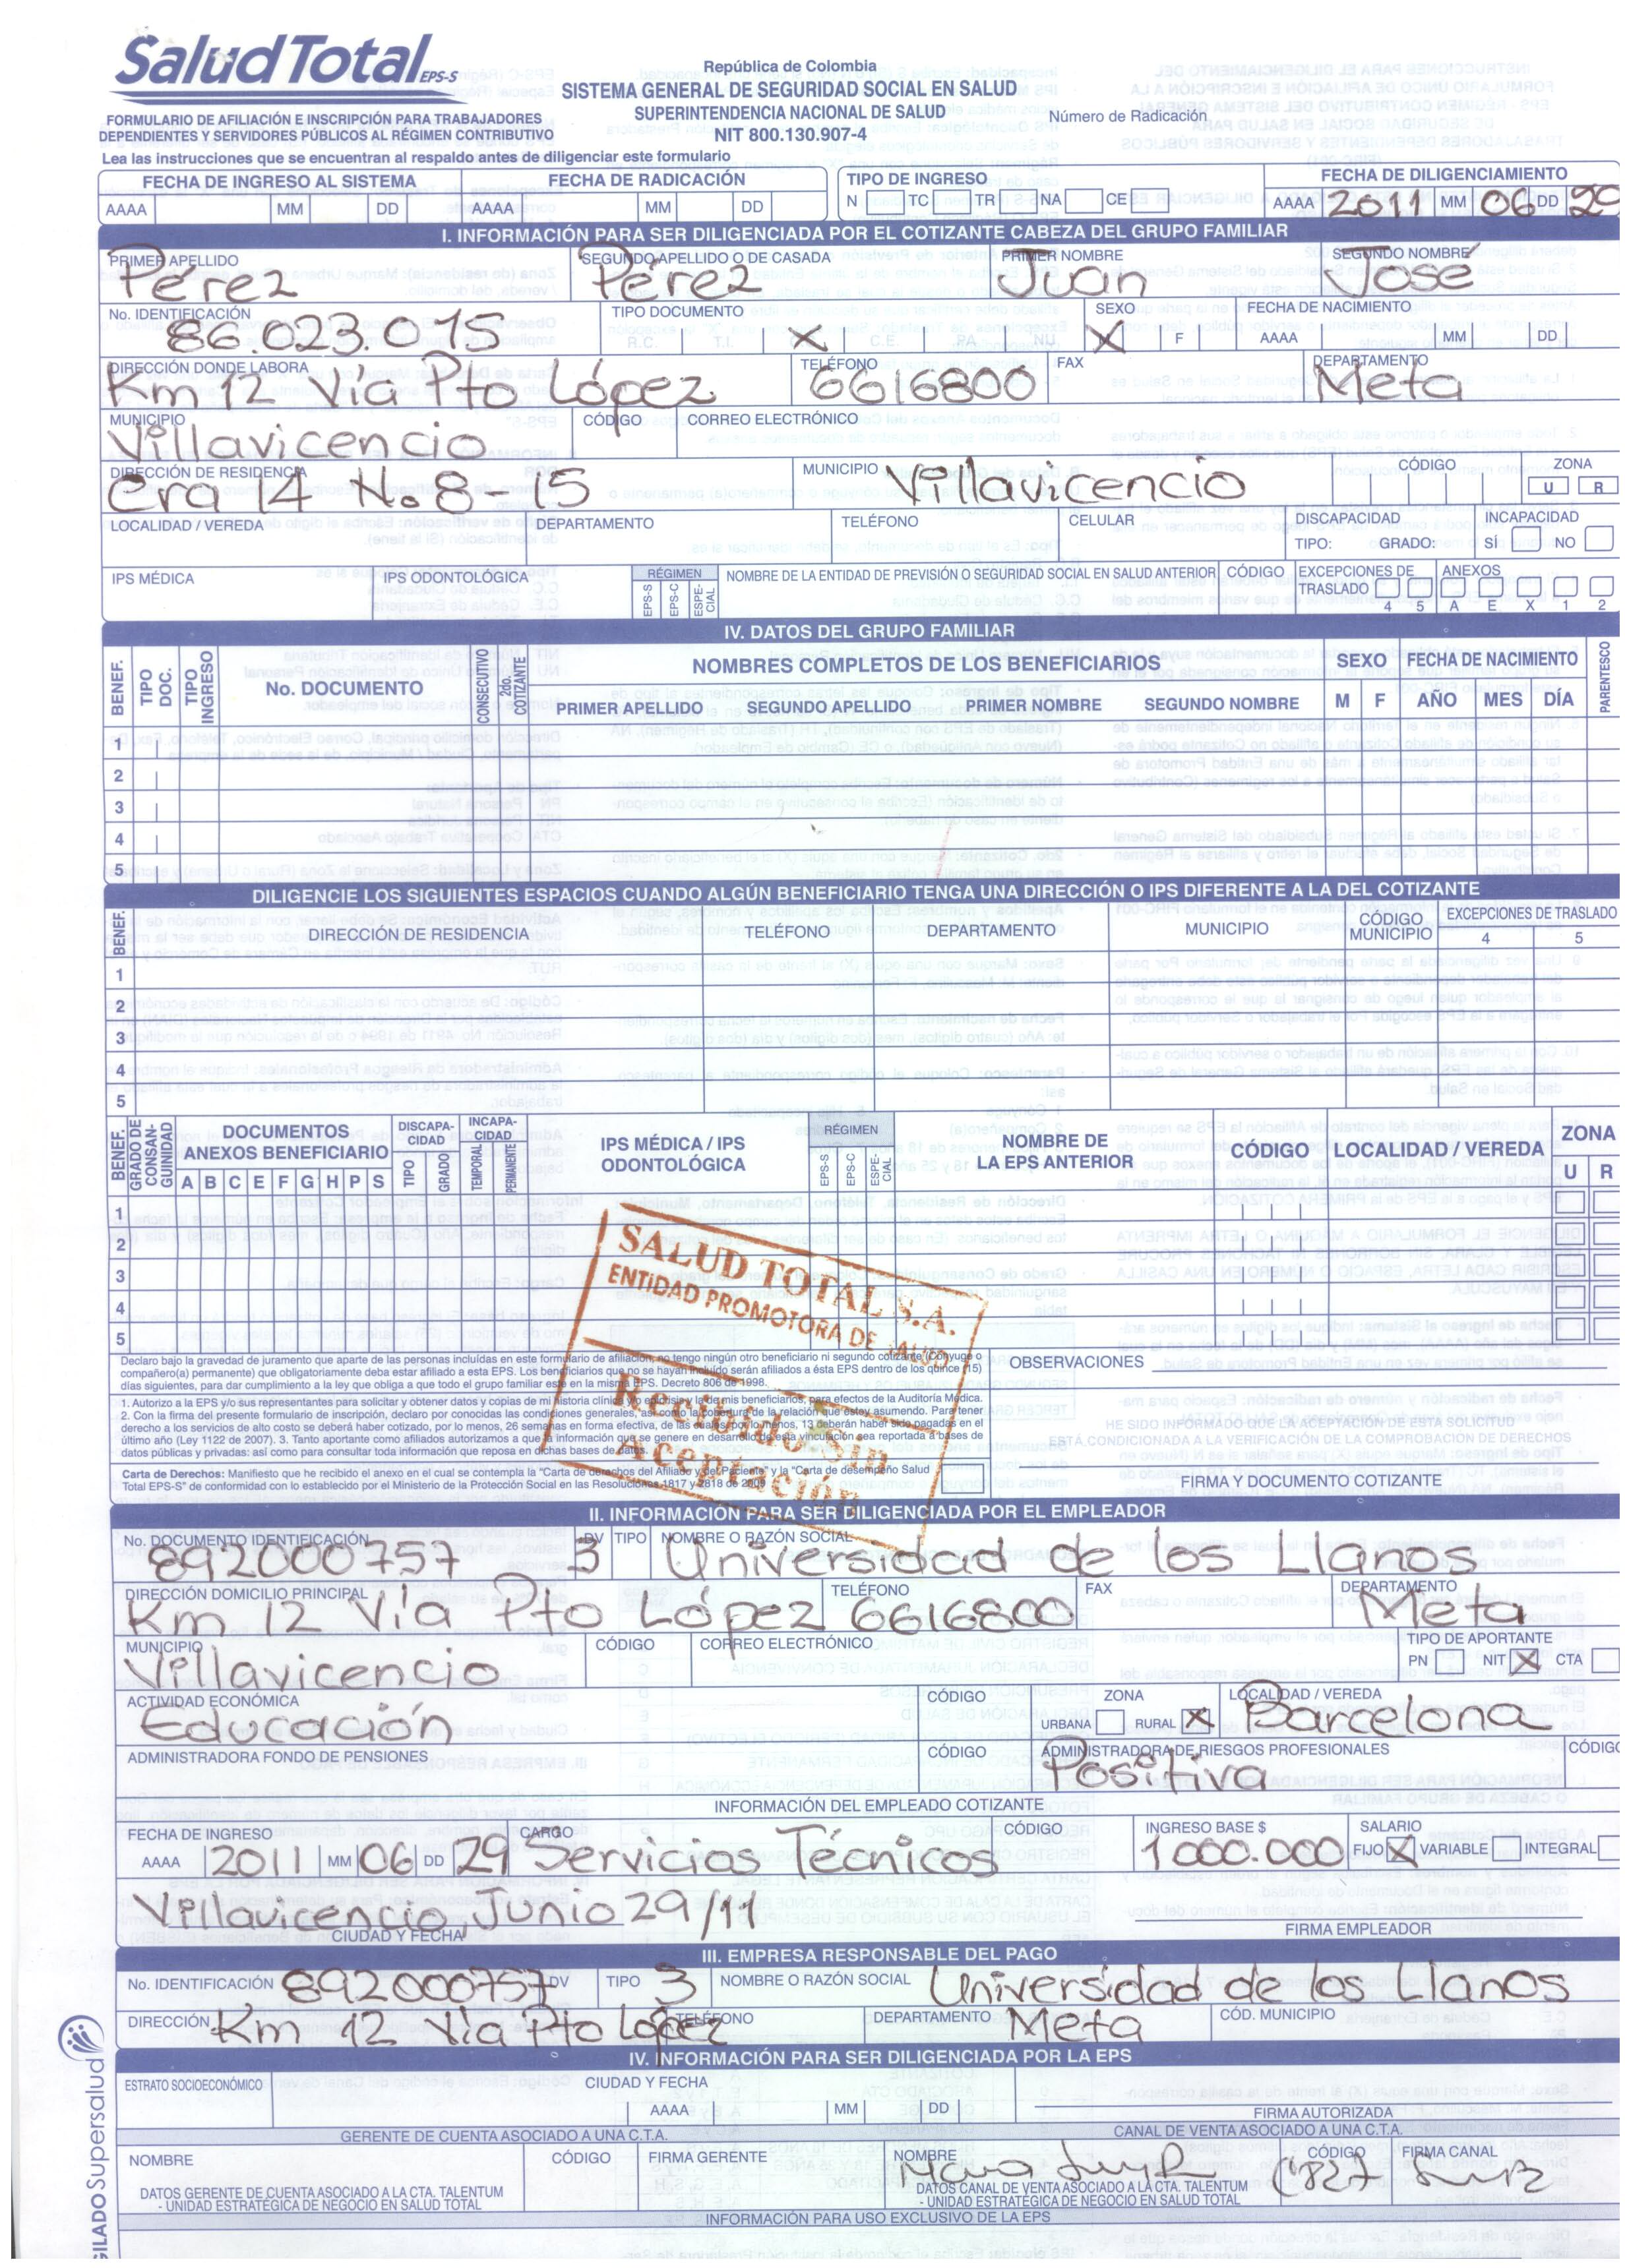 SaludTotal EPS-S
República de Colombia
SISTEMA GENERAL DE SEGURIDAD SOCIAL EN SALUD
SUPERINTENDENCIA NACIONAL DE SALUD
NIT 800.130.907-4
Número de Radicación
FORMULARIO DE AFILIACIÓN E INSCRIPCIÓN PARA TRABAJADORES
DEPENDIENTES Y SERVIDORES PÚBLICOS AL RÉGIMEN CONTRIBUTIVO
Lea las instrucciones que se encuentran al respaldo antes de diligenciar este formulario
FECHA DE INGRESO AL SISTEMA FECHA DE RADICACIÓN TIPO DE INGRESO FECHA DE DILIGENCIAMIENTO
AAAA MM DD AAAA MM DD N TC TR NA CE AAAA 2011 MM 06 DD 29
I. INFORMACIÓN PARA SER DILIGENCIADA POR EL COTIZANTE CABEZA DEL GRUPO FAMILIAR
PRIMER APELLIDO SEGUNDO APELLIDO O DE CASADA PRIMER NOMBRE SEGUNDO NOMBRE
Pérez Pérez Juan José
No. IDENTIFICACIÓN TIPO DOCUMENTO SEXO FECHA DE NACIMIENTO
86.023.015 R.C. T.I. X C.E. PA NU M X F AAAA MM DD
DIRECCIÓN DONDE LABORA TELÉFONO FAX DEPARTAMENTO
Km 12 Vía Pto López 6616800 Meta
MUNICIPIO CÓDIGO CORREO ELECTRÓNICO
Villavicencio
DIRECCIÓN DE RESIDENCIA MUNICIPIO CÓDIGO ZONA
Cra 14 N.8-15 Villavicencio U R
LOCALIDAD / VEREDA DEPARTAMENTO TELÉFONO CELULAR DISCAPACIDAD INCAPACIDAD
TIPO: GRADO: SÍ NO
IPS MÉDICA IPS ODONTOLÓGICA RÉGIMEN EPS-S EPS-C ESPE-CIAL NOMBRE DE LA ENTIDAD DE PREVISIÓN O SEGURIDAD SOCIAL EN SALUD ANTERIOR CÓDIGO EXCEPCIONES DE TRASLADO ANEXOS
4 5 A E X 1 2
IV. DATOS DEL GRUPO FAMILIAR
BENEF. TIPO DOC. TIPO INGRESO No. DOCUMENTO CONSECUTIVO 2do. COTIZANTE NOMBRES COMPLETOS DE LOS BENEFICIARIOS SEXO FECHA DE NACIMIENTO PARENTESCO
PRIMER APELLIDO SEGUNDO APELLIDO PRIMER NOMBRE SEGUNDO NOMBRE M F AÑO MES DÍA
1
2
3
4
5
DILIGENCIE LOS SIGUIENTES ESPACIOS CUANDO ALGÚN BENEFICIARIO TENGA UNA DIRECCIÓN O IPS DIFERENTE A LA DEL COTIZANTE
BENEF. DIRECCIÓN DE RESIDENCIA TELÉFONO DEPARTAMENTO MUNICIPIO CÓDIGO MUNICIPIO EXCEPCIONES DE TRASLADO
4 5
1
2
3
4
5
BENEF. GRADO DE CONSAN-GUINIDAD DOCUMENTOS ANEXOS BENEFICIARIO DISCAPA-CIDAD INCAPA-CIDAD IPS MÉDICA / IPS ODONTOLÓGICA RÉGIMEN NOMBRE DE LA EPS ANTERIOR CÓDIGO LOCALIDAD / VEREDA ZONA
A B C E F G H P S TIPO GRADO TEMPORAL PERMANENTE EPS-S EPS-C ESPE-CIAL U R
1
2
3
4
5
SALUD TOTAL S.A.
ENTIDAD PROMOTORA DE SALUD
Recibido sin
Aceptación
Declaro bajo la gravedad de juramento que aparte de las personas incluídas en este formulario de afiliación, no tengo ningún otro beneficiario ni segundo cotizante (Cónyuge o
compañero(a) permanente) que obligatoriamente deba estar afiliado a esta EPS. Los beneficiarios que no se hayan incluído serán afiliados a ésta EPS dentro de los quince (15)
días siguientes, para dar cumplimiento a la ley que obliga a que todo el grupo familiar esté en la misma EPS. Decreto 806 de 1998.
OBSERVACIONES
1. Autorizo a la EPS y/o sus representantes para solicitar y obtener datos y copias de mi historia clínica y/o epicrisis y la de mis beneficiarios, para efectos de la Auditoría Médica.
2. Con la firma del presente formulario de inscripción, declaro por conocidas las condiciones generales, así como la cobertura de la relación que estoy asumiendo. Para tener
derecho a los servicios de alto costo se deberá haber cotizado, por lo menos, 26 semanas en forma efectiva, de las cuales por lo menos, 13 deberán haber sido pagadas en el
último año (Ley 1122 de 2007). 3. Tanto aportante como afiliados autorizamos a que la información que se genere en desarrollo de esta vinculación sea reportada a bases de
datos públicas y privadas: así como para consultar toda información que reposa en dichas bases de datos.
HE SIDO INFORMADO QUE LA ACEPTACIÓN DE ESTA SOLICITUD
ESTÁ CONDICIONADA A LA VERIFICACIÓN DE LA COMPROBACIÓN DE DERECHOS
Carta de Derechos: Manifiesto que he recibido el anexo en el cual se contempla la "Carta de derechos del Afiliado y del Paciente" y la "Carta de desempeño Salud
Total EPS-S" de conformidad con lo establecido por el Ministerio de la Protección Social en las Resoluciones 1817 y 2818 de 2009
FIRMA Y DOCUMENTO COTIZANTE
II. INFORMACIÓN PARA SER DILIGENCIADA POR EL EMPLEADOR
No. DOCUMENTO IDENTIFICACIÓN DV TIPO NOMBRE O RAZÓN SOCIAL
892000757 3 Universidad de los Llanos
DIRECCIÓN DOMICILIO PRINCIPAL TELÉFONO FAX DEPARTAMENTO
Km 12 Vía Pto López 6616800 Meta
MUNICIPIO CÓDIGO CORREO ELECTRÓNICO TIPO DE APORTANTE
Villavicencio PN NIT X CTA
ACTIVIDAD ECONÓMICA CÓDIGO ZONA LOCALIDAD / VEREDA
Educación URBANA RURAL X Barcelona
ADMINISTRADORA FONDO DE PENSIONES CÓDIGO ADMINISTRADORA DE RIESGOS PROFESIONALES CÓDIGO
Positiva
INFORMACIÓN DEL EMPLEADO COTIZANTE
FECHA DE INGRESO CARGO CÓDIGO INGRESO BASE $ SALARIO
AAAA 2011 MM 06 DD 29 Servicios Técnicos 1000.000 FIJO X VARIABLE INTEGRAL
Villavicencio Junio 29/11
CIUDAD Y FECHA FIRMA EMPLEADOR
III. EMPRESA RESPONSABLE DEL PAGO
No. IDENTIFICACIÓN 892000757 DV TIPO 3 NOMBRE O RAZÓN SOCIAL Universidad de los Llanos
DIRECCIÓN Km 12 Vía Pto López TELÉFONO DEPARTAMENTO Meta CÓD. MUNICIPIO
IV. INFORMACIÓN PARA SER DILIGENCIADA POR LA EPS
ESTRATO SOCIOECONÓMICO CIUDAD Y FECHA
AAAA MM DD FIRMA AUTORIZADA
GERENTE DE CUENTA ASOCIADO A UNA C.T.A. CANAL DE VENTA ASOCIADO A UNA C.T.A.
NOMBRE CÓDIGO FIRMA GERENTE NOMBRE CÓDIGO FIRMA CANAL
DATOS GERENTE DE CUENTA ASOCIADO A LA CTA. TALENTUM
- UNIDAD ESTRATÉGICA DE NEGOCIO EN SALUD TOTAL
DATOS CANAL DE VENTA ASOCIADO A LA CTA. TALENTUM
- UNIDAD ESTRATÉGICA DE NEGOCIO EN SALUD TOTAL
INFORMACIÓN PARA USO EXCLUSIVO DE LA EPS
GILADO Supersalud